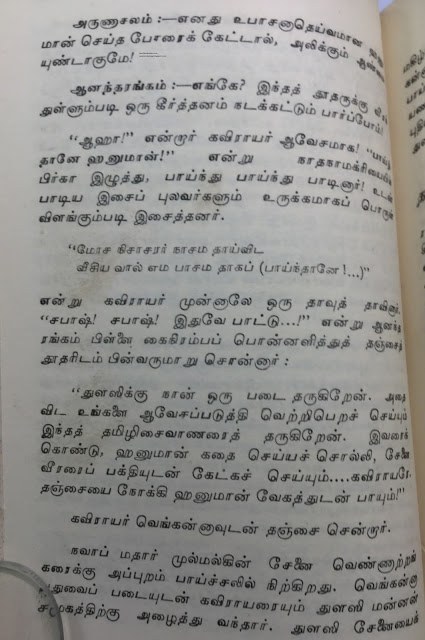 அருணாசலம் :—எனது உபாசனாதெய்வமான
மான் செய்த போரைக் கேட்டால், அலிக்கும் ஆண்மை
யுண்டாகுமே!
ஆனந்தரங்கம் :—எங்கே? இந்தத் தூதருக்கு
துள்ளும்படி ஒரு கீர்த்தனம் நடக்கட்டும் பார்ப்போம்!
“ஆஹா!” என்றார் கவிராயர் ஆவேசமாக! “பாய்ந்
தானே ஹனுமான்!” என்று நாதநாமக்ரியையில்
பிர்கா இழுத்து, பாய்ந்து பாய்ந்து பாடினார்! உடன்
பாடிய இசைப் புலவர்களும் உருக்கமாகப் பொருள்
விளங்கும்படி இசைத்தனர்.
“மோச நிசாசரர் நாசம தாய்விட
வீசிய வால் எம பாசம தாகப் (பாய்ந்தானே !...)”
என்று கவிராயர் முன்னாலே ஒரு தாவுத் தாவினார்.
“சபாஷ்! சபாஷ்! இதுவே பாட்டு...!” என்று ஆனந்த
ரங்கம் பிள்ளை கைநிரம்பப் பொன்னளித்துத் தஞ்சைத்
தூதரிடம் பின்வருமாறு சொன்னார் :
“துளஸிக்கு நான் ஒரு படை தருகிறேன். அதை
விட உங்களை ஆவேசப்படுத்தி வெற்றிபெறச் செய்யும்
இந்தத் தமிழிசைவாணரைத் தருகிறேன். இவரைக்
கொண்டு, ஹனுமான் கதை செய்யச் சொல்லி, சேனை
வீரரைப் பக்தியுடன் கேட்கச் செய்யும்....கவிராயரே,
தஞ்சையை நோக்கி ஹனுமான் வேகத்துடன் பாயும்!”
கவிராயர் வெங்கன்னாவுடன் தஞ்சை சென்றார்.
நவாப் மதார் முல்மல்கின் சேனை வெண்ணாற்றங்
கரைக்கு அப்புறம் பாய்ச்சலில் நிற்கிறது. வெங்கன்னா
புதுவைப் படையுடன் கவிராயரையும் துளஸி மன்னன்
சமுகத்திற்கு அழைத்து வந்தார். துளஸி சேனையைக்